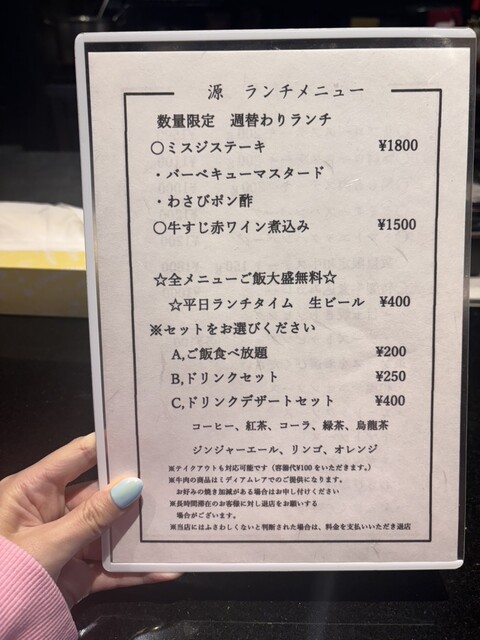 源 ランチメニュー
数量限定 週替わりランチ
〇ミスジステーキ ¥1800
・バーベキューマスタード
・わさびポン酢
〇牛すじ赤ワイン煮込み ¥1500
☆全メニューご飯大盛無料☆
☆平日ランチタイム 生ビール ¥400
※セットをお選びください
A,ご飯食べ放題 ¥200
B,ドリンクセット ¥250
C,ドリンクデザートセット ¥400
コーヒー、紅茶、コーラ、緑茶、烏龍茶
ジンジャーエール、リンゴ、オレンジ
※テイクアウトも対応可能です（容器代¥100をいただきます。）
※牛肉の商品はミディアムレアでのご提供になります。
お好みの焼き加減がある場合はお申し付けください
※長時間滞在のお客様に対し退店をお願いする
場合がございます。
※当店にはふさわしくないと判断された場合は、料金を支払いいただき退店